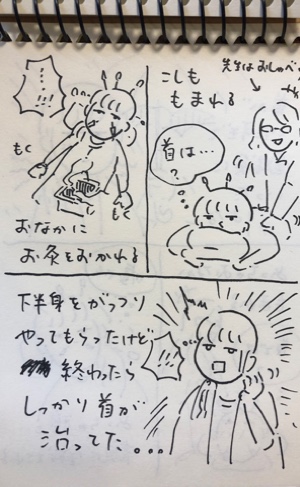 先生はおしゃべり
こしも
もまれる
首は…
?
…!!
もく
もく
おなかに
お灸をおかれる
下半身をがっつり
やってもらったけど
終わったら
しっかり首が
治ってた...
!!!